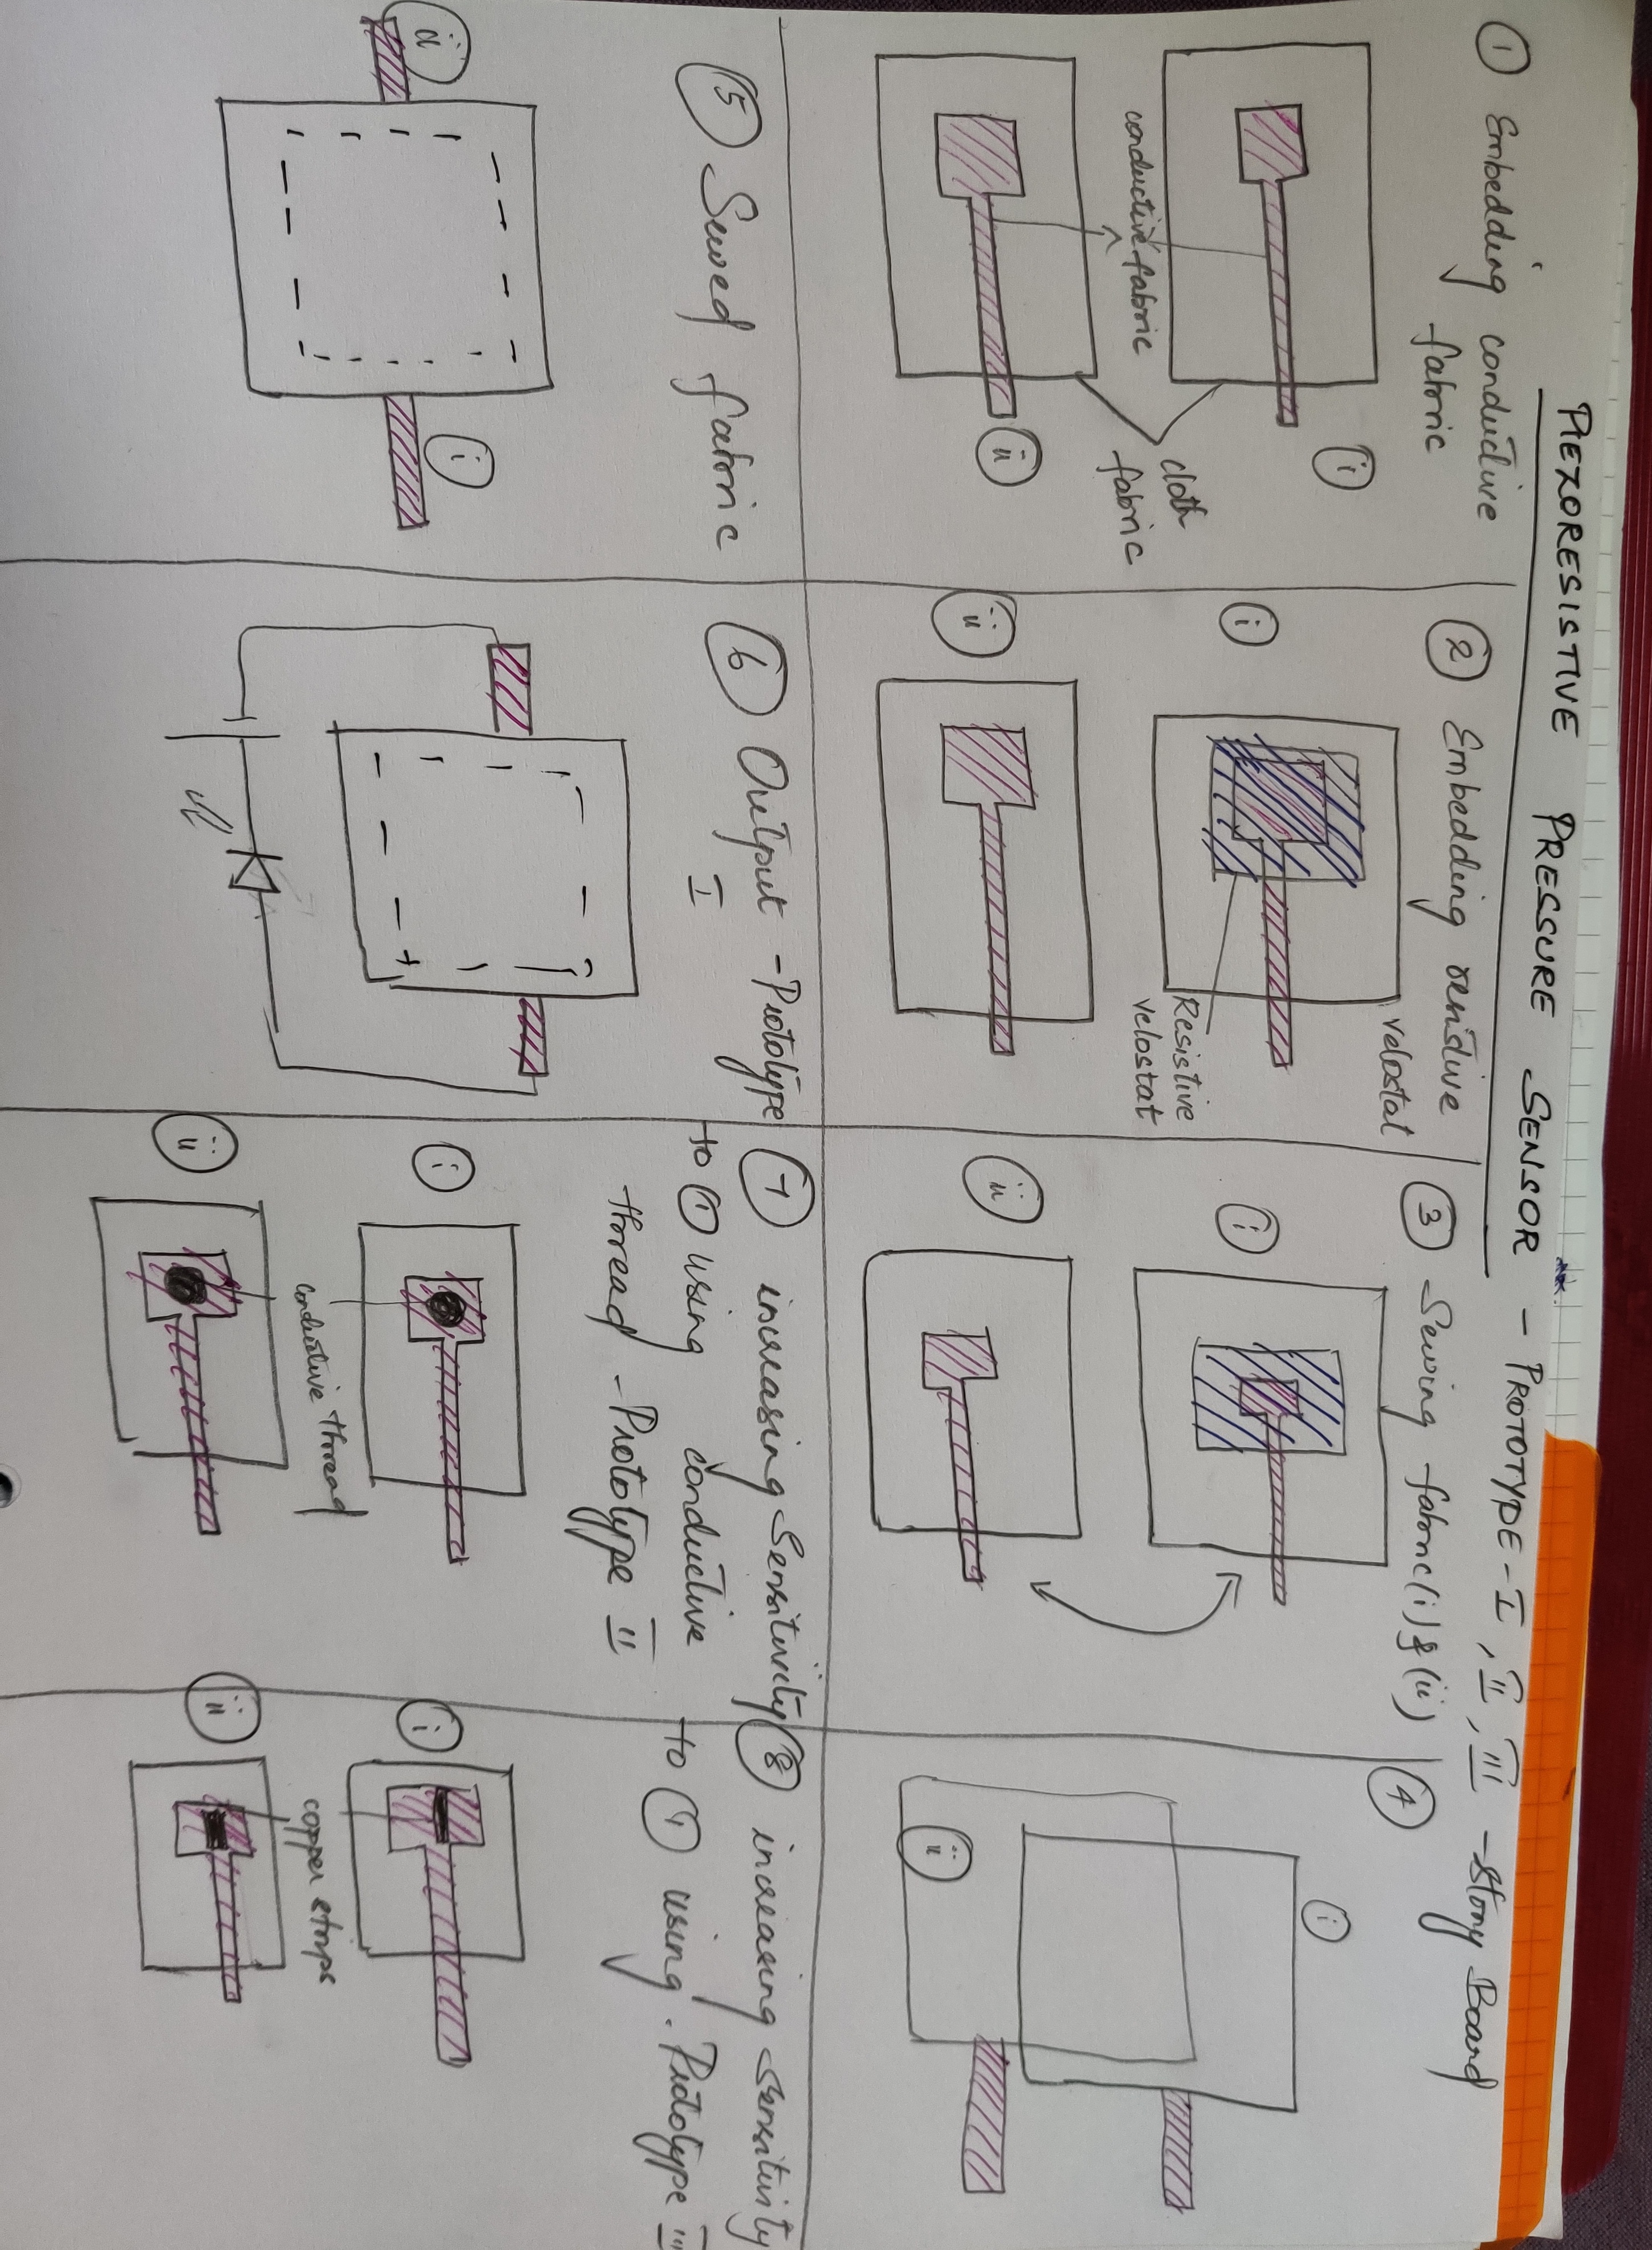 PIEZORESISTIVE PRESSURE SENSOR - PROTOTYPE - I, II, III - Story Board
① Embedding conductive
fabric
i
conductive fabric
ii
cloth
fabric
② Embedding
velostat
i
Resistive
velostat
ii
③ Sewing fabric (i) & (ii)
i
ii
④
i
ii
⑤ Sewed fabric
ii
i
⑥ Output - Prototype
I
⑦ increasing Sensitivity
to ① using conductive
thread - Prototype II
i
conductive thread
ii
⑧ increasing sensitivity
to ① using. Prototype III
i
copper strips
ii